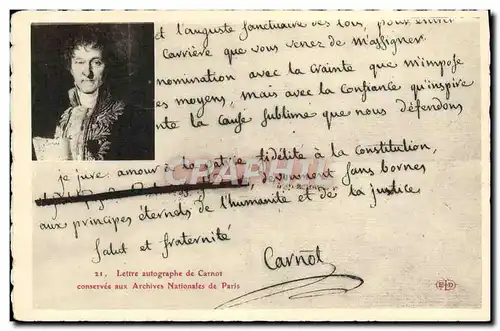 et l'auguste sanctuaire des lois, pour entrer
carrière que vous venez de m'assigner
nomination avec la crainte que m'impose
es moyens, mais avec la confiance qu'inspire
nte la cause sublime que nous défendons
je jure amour à la patrie fidélité à la constitution,
dévouement sans bornes
aux principes éternels de l'humanité et de la justice
Salut et fraternité
Carnot
21. Lettre autographe de Carnot
conservée aux Archives Nationales de Paris
CPARAMA